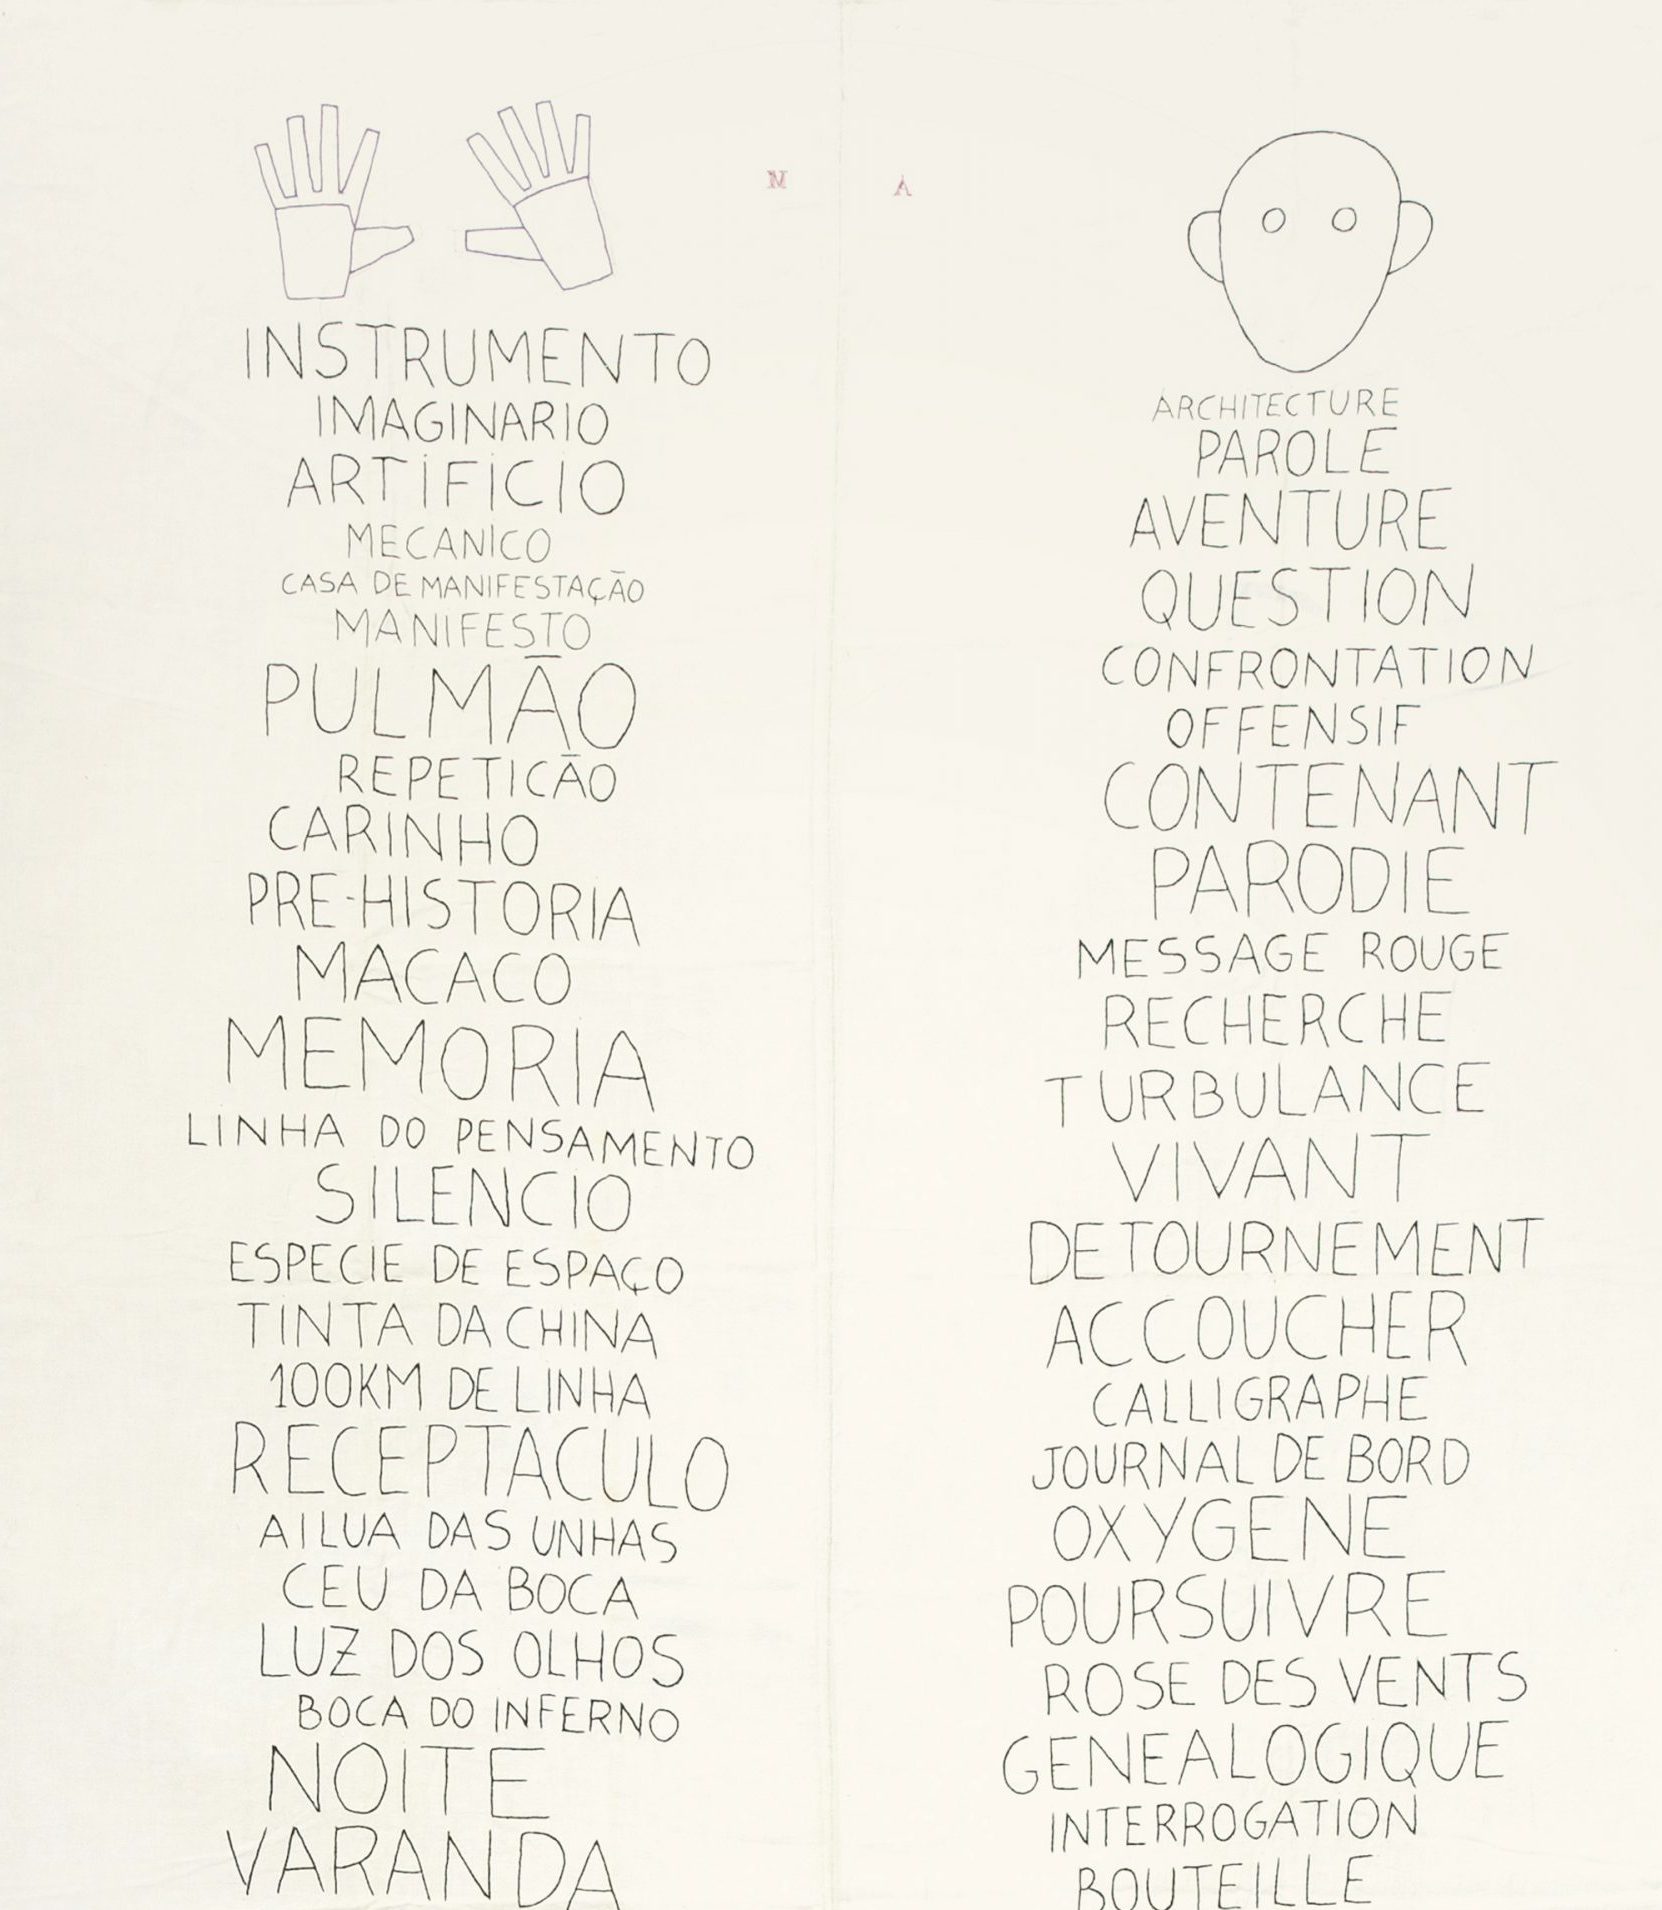 M A
INSTRUMENTO
IMAGINARIO
ARTIFICIO
MECANICO
CASA DE MANIFESTAÇÃO
MANIFESTO
PULMÃO
REPETICÃO
CARINHO
PRE-HISTORIA
MACACO
MEMORIA
LINHA DO PENSAMENTO
SILENCIO
ESPECIE DE ESPAÇO
TINTA DA CHINA
100KM DE LINHA
RECEPTACULO
AILUA DAS UNHAS
CEU DA BOCA
LUZ DOS OLHOS
BOCA DO INFERNO
NOITE
VARANDA
ARCHITECTURE
PAROLE
AVENTURE
QUESTION
CONFRONTATION
OFFENSIF
CONTENANT
PARODIE
MESSAGE ROUGE
RECHERCHE
TURBULANCE
VIVANT
DETOURNEMENT
ACCOUCHER
CALLIGRAPHE
JOURNAL DE BORD
OXYGENE
POURSUIVRE
ROSE DES VENTS
GENEALOGIQUE
INTERROGATION
BOUTEILLE